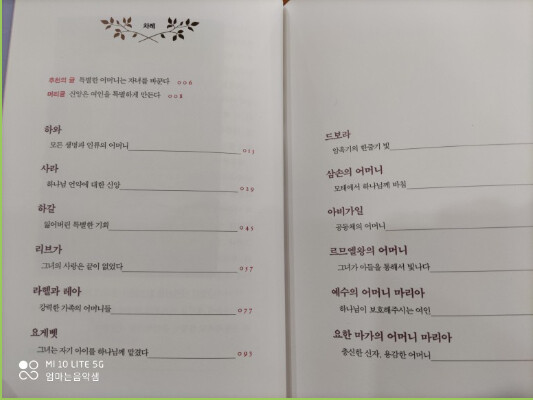 차례
추천의 글 특별한 어머니는 자녀를 바꾼다 006
머리글 신앙은 여인을 특별하게 만든다 008
하와
모든 생명과 인류의 어머니 013
사라
하나님 언약에 대한 신앙 029
하갈
잃어버린 특별한 기회 045
리브가
그녀의 사랑은 끝이 없었다 057
라헬과 레아
강력한 가족의 어머니들 077
요게벳
그녀는 자기 아이를 하나님께 맡겼다 093
드보라
암흑기의 한줄기 빛
삼손의 어머니
모태에서 하나님께 바침
아비가일
공동체의 어머니
르므엘왕의 어머니
그녀가 아들을 통해서 빛나다
예수의 어머니 마리아
하나님이 보호해주시는 여인
요한 마가의 어머니 마리아
충신한 신자, 용감한 어머니
MI 10 LITE 5G
엄마는음악샘